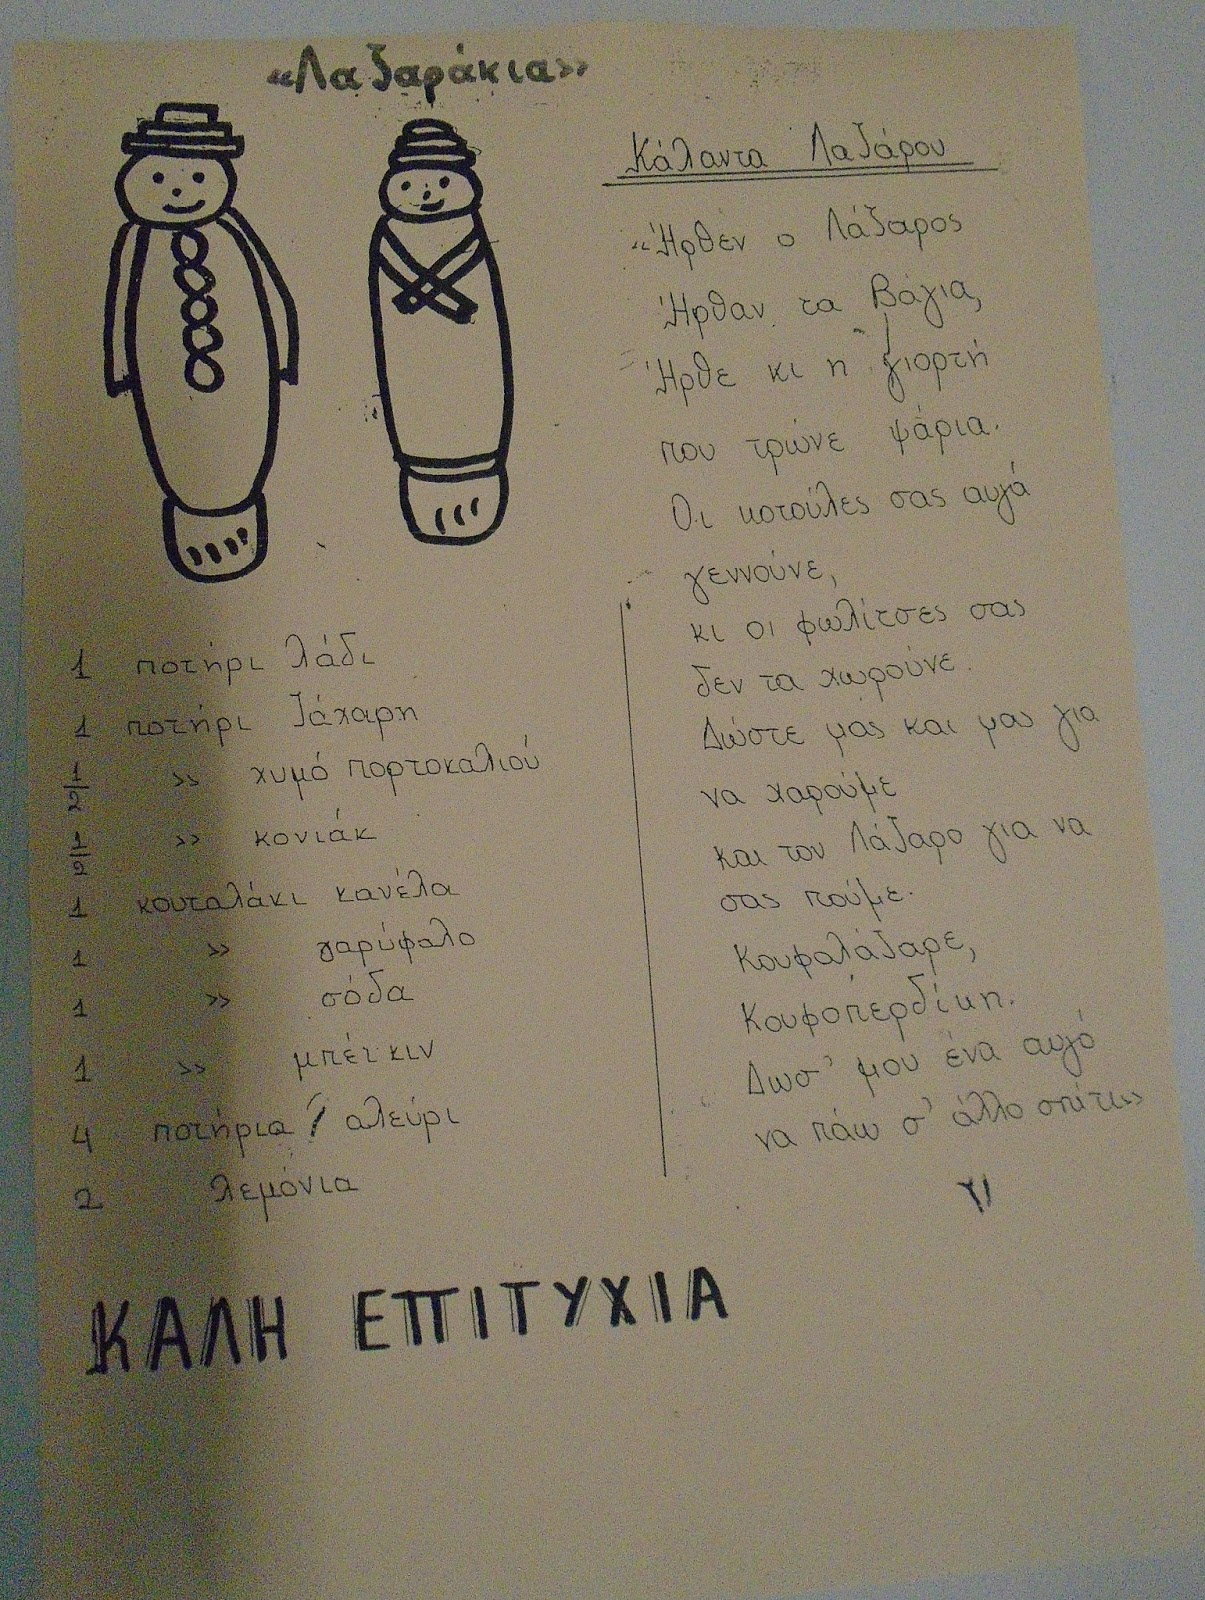 «Λαζαράκια»
1 ποτήρι λάδι
1 ποτήρι ζάχαρη
1/2 » χυμό πορτοκαλιού
1/2 » κονιάκ
1 κουταλάκι κανέλα
1 » γαρύφαλο
1 » σόδα
1 » μπέικιν
4 ποτήρια αλεύρι
2 λεμόνια
Κάλαντα Λαζάρου
«Ήρθεν ο Λάζαρος
Ήρθαν τα Βάγια,
Ήρθε κι η γιορτή
που τρώνε ψάρια.
Οι κοτούλες σας αυγά
γεννούνε,
κι οι φωλίτσες σας
δεν τα χωρούνε.
Δώστε μας και μας για
να χαρούμε
και τον Λάζαρο για να
σας πούμε.
Κουφαλάζαρε,
Κουφοπερδίκη.
Δωσ' μου ένα αυγό
να πάω σ' άλλο σπίτι»
ΚΑΛΗ ΕΠΙΤΥΧΙΑ